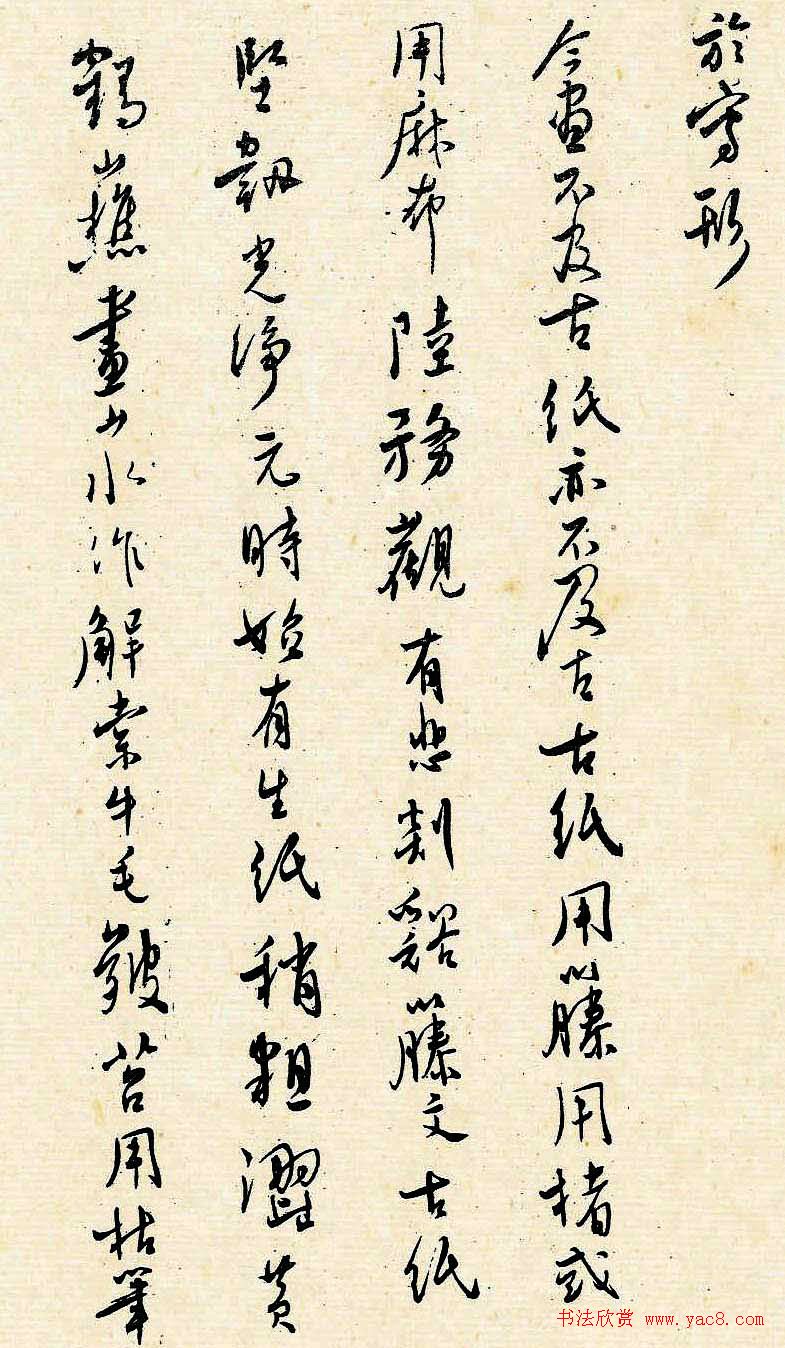 於寫形
今畫不及古紙亦不及古古紙用籐用楮或
用麻布陸務觀有悲剡谿籐文古紙
堅韌光淨元時始有生紙稍粗澀黄
鶴山樵畫山水作解索牛毛皴苔用枯筆
书法欣赏 www.yac8.com